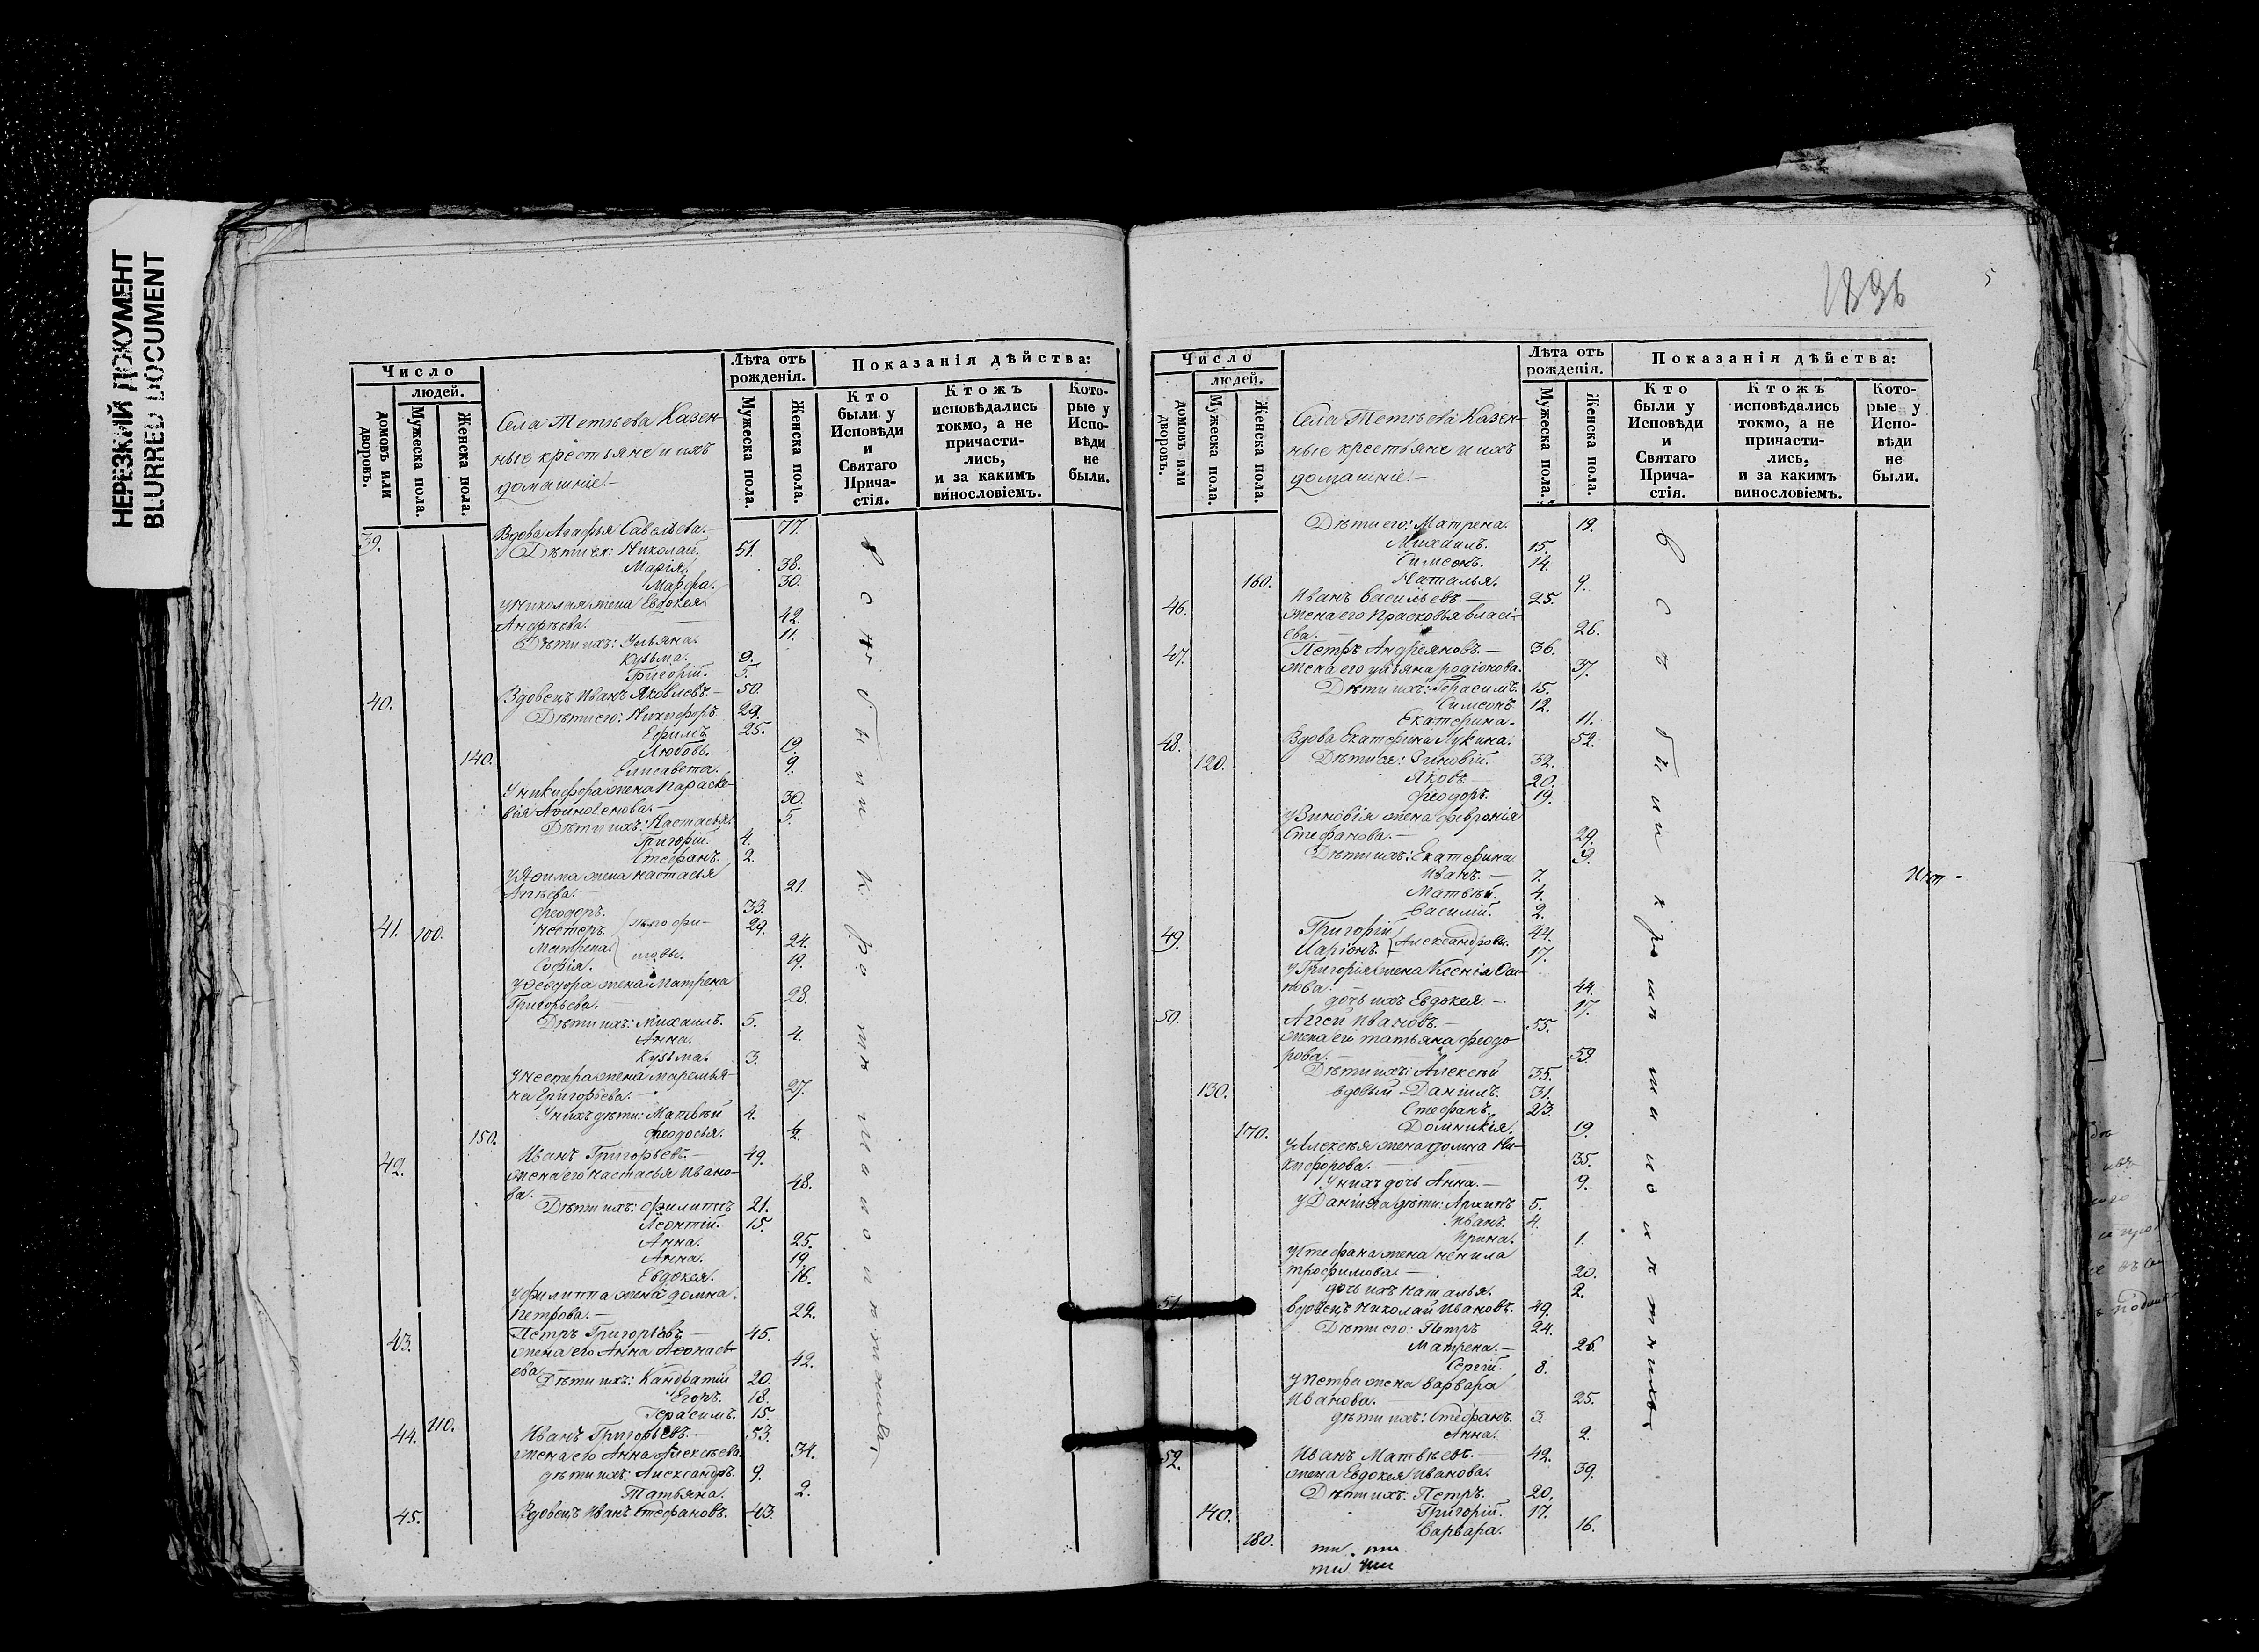 НЕРЕЗКИЙ ДОКУМЕНТ
BLURRED DOCUMENT
Число
людей.
домовъ или дворовъ.
Мужеска пола.
Женска пола.
Села Тетѣева Казен-
ные крестьяне и ихъ
домашніе.-
Лѣта отъ рожденія.
Мужеска пола.
Женска пола.
Показанія дѣйства:
Кто были у Исповѣди и Святаго Прича-стія.
Ктожъ исповѣдались токмо, а не причасти-лись, и за какимъ винословіемъ.
Кото-рые у Испо-вѣди не были.
39. Вдова Агафья Савельева.- 77.
Дѣти ея: Николай. 51.
Марія. 38.
Марфа. 30.
У Николая жена Евдокея
Андрѣева. 42.
Дѣти ихъ: Ульяна. 11.
Кузьма. 9.
Григорій. 5.
40. Вдовецъ Иванъ Яковлевъ.- 50.
Дѣти его: Никифоръ. 29.
Ефимъ 25.
Любовь. 19.
140. Елисавета. 9.
У Никифора жена Параске-
вія 30.
Дѣти ихъ: Настасья. 5.
Григорій. 4.
Стефанъ. 2.
жена Настасья
Агѣева. 21.
Феодоръ. 33.
41. 100. Нестеръ. 29.
Матрена. 24.
Софія. 19.
У Феодора жена Матрена
Григорьева. 28.
Дѣти ихъ: Михаилъ. 5.
Анна. 4.
Кузьма. 3.
У Нестера жена Маремья-
на Григорьева.- 27.
У нихъ дѣти: Матвѣй 4.
150. Феодосья. 2.
42. Иванъ Григорьевъ.- 49.
жена его Настасья Ивано-
ва.- 48.
Дѣти ихъ: Филиппъ 21.
Леонтій. 15.
Анна. 25.
Анна. 19.
Евдокея. 16.
У Филиппа жена Домна
Петрова.- 22.
43. Петръ Григорьевъ 45.
жена его Анна Афонась-
ева. 42.
Дѣти ихъ: Кандратій 20.
Егоръ. 18.
Герасимъ. 15.
44. 110. Иванъ Григорьевъ.- 53.
жена его Анна Алексѣева. 34.
дѣти ихъ: Александръ. 9.
Татьяна. 2.
45. Вдовецъ Иванъ Стефановъ. 43.
1836
5
Число
людей.
домовъ или дворовъ.
Мужеска пола.
Женска пола.
Села Тетѣева Казен-
ные крестьяне и ихъ
домашніе.-
Лѣта отъ рожденія.
Мужеска пола.
Женска пола.
Показанія дѣйства:
Кто были у Исповѣди и Святаго Прича-стія.
Ктожъ исповѣдались токмо, а не причасти-лись, и за какимъ винословіемъ.
Кото-рые у Испо-вѣди не были.
Дѣти его: Матрена. 19.
Михаилъ. 15.
Симеонъ. 14.
160. Наталья. 9.
46. Иванъ Васильевъ.- 25.
жена его Прасковья Власі-
ева. 26.
47. Петръ Андреяновъ.- 36.
жена его Ульяна Родіонова. 37.
Дѣти ихъ: Герасимъ. 15.
Симеонъ 12.
Екатерина. 11.
48. Вдова Екатерина Лукина. 52.
120. Дѣти ея: Зиновій. 32.
Яковъ. 20.
Феодоръ. 19.
У Зиновія жена Февронія
Стефанова.- 29.
Дѣти ихъ: Екатерина 9.
Иванъ.- 7.
Матвѣй. 4.
Василій. 2.
49. Григорій 44.
Иларіонъ. Александровы. 17.
У Григорія жена Ксенія
44.
дочь ихъ Евдокея.- 17.
50. Агей Ивановъ.- 55.
жена его Татьяна Феодо
рова. 59.
Дѣти ихъ: Алексѣй 35.
130. вдовый Даніилъ. 31.
Стефанъ. 23.
170. Домникія. 19.
У Алексѣя жена Домна Ни-
кифорова.- 35.
У нихъ дочь Анна.- 9.
У Даніила дѣти: Архипъ 5.
Иванъ. 4.
Ирина. 1.
У Стефана жена Ненила
Трофимова.- 20.
дочь ихъ Наталья. 2.
51. Вдовецъ Николай Ивановъ. 49.
Дѣти его: Петръ 24.
Матрена.- 26.
Сергій. 8.
У Петра жена Варвара
Иванова. 25.
дѣти ихъ: Стефанъ. 3.
Анна. 2.
52. Иванъ Матвѣевъ. 42.
жена Евдокея Иванова. 39.
Дѣти ихъ: Петръ. 20.
140. Григорій. 17.
180. Варвара. 16.